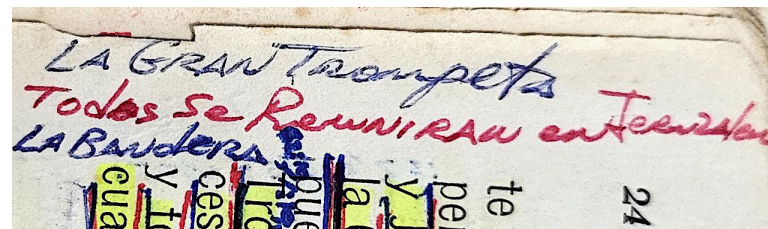 LA GRAN Trompeta
Todos Se REUNIRAN en Jeruzalen
LA BANDERA
24
te
per
y J
la
pue
Tro
ces
y to
cua